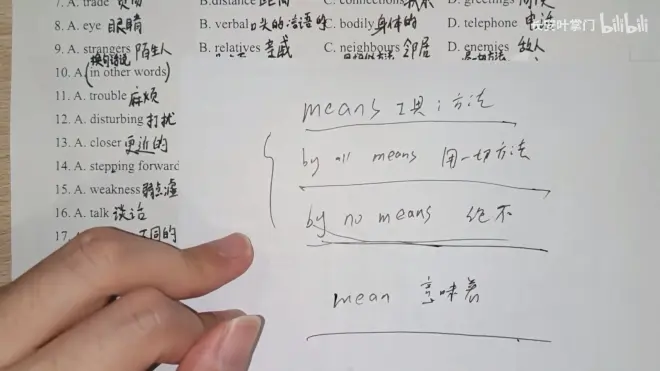 7. A. trade 贸易 B. distance 距离 C. connections D. greetings
8. A. eye 眼睛 B. verbal 口头的 话语的 C. bodily 身体的 D. telephone 电话
9. A. strangers 陌生人 B. relatives 亲戚 C. neighbours 邻居 D. enemies 敌人
换句话说
10. A. (in other words)
11. A. trouble 麻烦
12. A. disturbing 打扰
13. A. closer 更近的
14. A. stepping forward
15. A. weakness 弱点
16. A. talk 谈话
17. 不同的
means 工具；方法
by all means 用一切方法
by no means 绝不
mean 意味着
bilibili